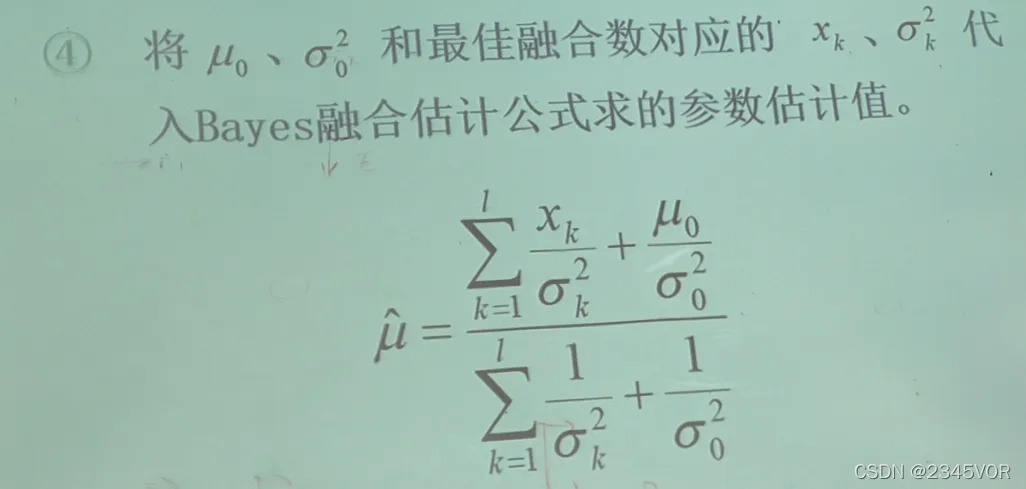 ④ 将 μ₀、σ₀² 和最佳融合数对应的 xₖ、σₖ² 代
入Bayes融合估计公式求的参数估计值。
μ̂ = (∑_{k=1}^{l} xₖ/σₖ² + μ₀/σ₀²) / (∑_{k=1}^{l} 1/σₖ² + 1/σ₀²)
CSDN @2345VOR